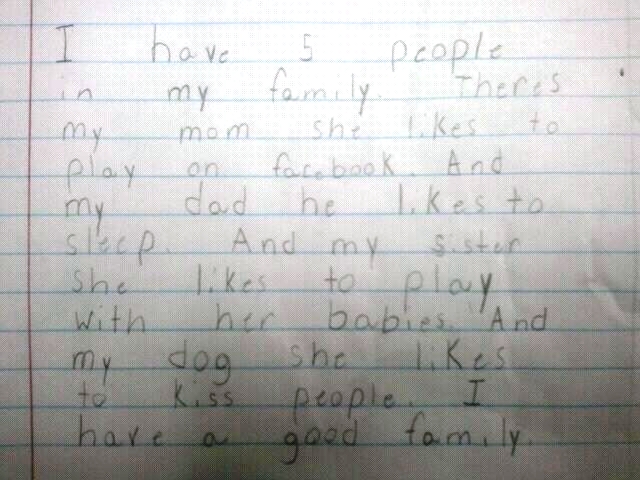 I have 5 people
in my family. Theres
my mom she likes to
play on facebook. And
my dad he likes to
sleep. And my sister
she likes to play
with her babies. And
my dog she likes
to kiss people. I
have a good family.